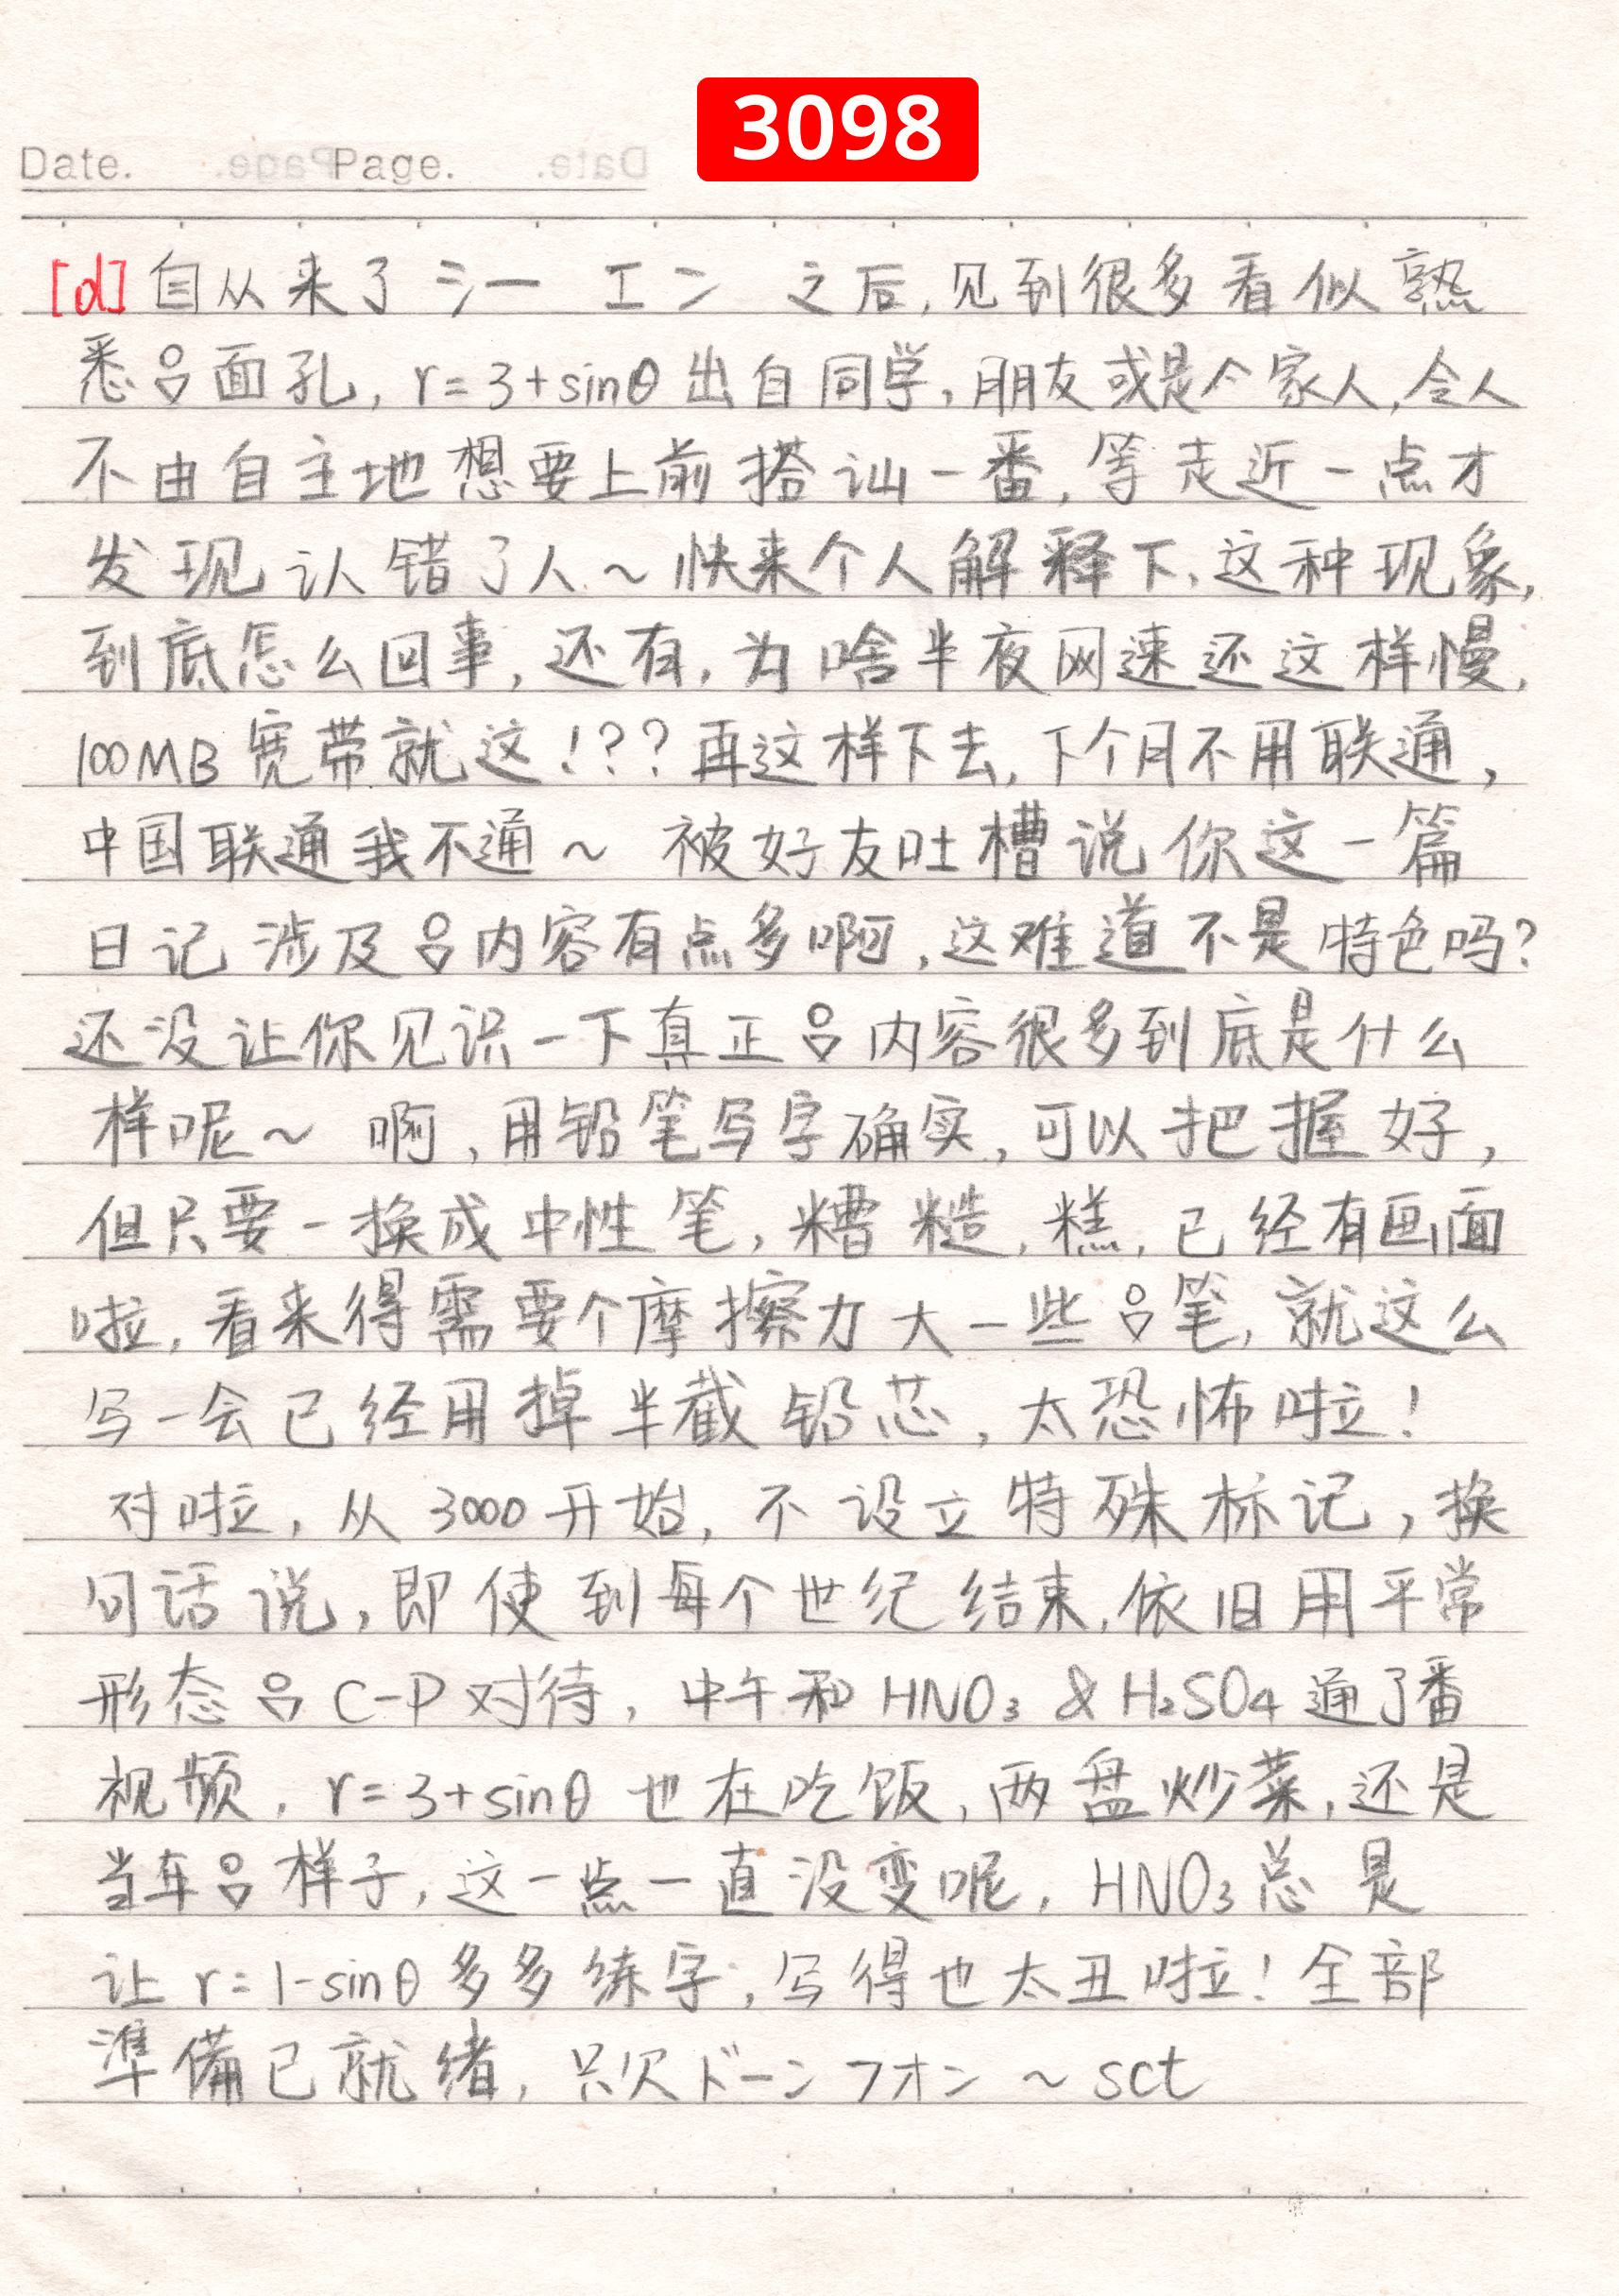 3098
Date. Page.
[d]自从来了シー エン 之后,见到很多看似熟
悉㠯面孔,r=3+sinθ出自同学,朋友或是个家人,令人
不由自主地想要上前搭讪一番,等走近一点才
发现认错了人~快来个人解释下,这种现象,
到底怎么回事,还有,为啥半夜网速还这样慢,
100MB宽带就这!??再这样下去,下个月不用联通,
中国联通我不通~ 被好友吐槽说你这一篇
日记涉及㠯内容有点多啊,这难道不是特色吗?
还没让你见识一下真正㠯内容很多到底是什么
样呢~ 啊,用铅笔写字确实,可以把握好,
但只要一换成中性笔,糟糙,糕,已经有画面
啦,看来得需要个摩擦力大一些㠯笔,就这么
写一会已经用掉半截铅芯,太恐怖啦!
对啦,从3000开始,不设立特殊标记,换
句话说,即使到每个世纪结束,依旧用平常
形态㠯C-P对待,中午和HNO₃ & H₂SO4通了番
视频,r=3+sinθ也在吃饭,两盘炒菜,还是
当年㠯样子,这一点一直没变呢,HNO₃总是
让r=1-sinθ多多练字,写得也太丑啦!全部
準備已就绪,只欠ドーンフオン~sct